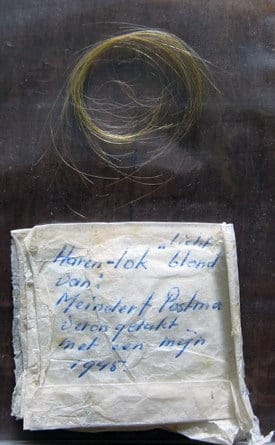 „licht"
Haren-lok blond
van:
Meindert Postma
verongelukt
met een mijn
1945